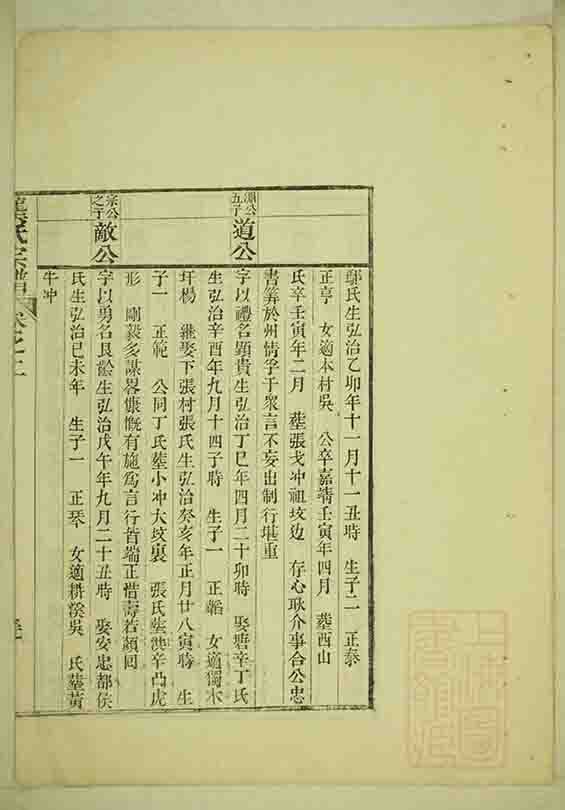 鄢氏生弘治乙卯年十一月十一丑時 生子二 正泰
正亨 女適本村吳 公卒嘉靖壬寅年四月 葬西山
氏卒壬寅年二月 葬張戈冲祖坟边 存心耿介事合公忠
書筭於州情孚于衆言不妄出制行堪重
淵公五子
道公
字以禮名顕貴生弘治丁巳年四月二十卯時 娶塘辛丁氏
生弘治辛酉年九月十四子時 生子一 正韜 女適獨木
圩楊 繼娶下張村張氏生弘治癸亥年正月廿八寅時 生
子一 正範 公同丁氏葬小冲大坟裏 張氏葬辛凸虎
形 剛毅多謀畧慷慨有施為言行皆端正惜壽若顏回
宗公之子
敵公
字以勇名艮齡生弘治戊午年九月二十丑時 娶安忠都侯
氏生弘治己未年 生子一 正琴 女適耕溪吳 氏葬黃
牛冲
氏宗譜 卷之二